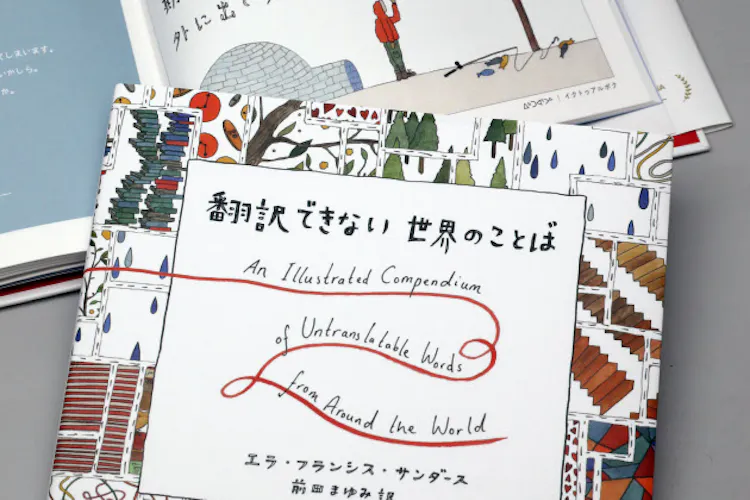 外に出て
ᐃᒃᑦᓱᐊᕐᐳᒃ | イクトゥアルポク
てしまいます。
いかしら。
か。
翻訳できない 世界のことば
An Illustrated Compendium
of Untranslatable Words
from Around the World
エラ・フランシス・サンダース
前田まゆみ 訳